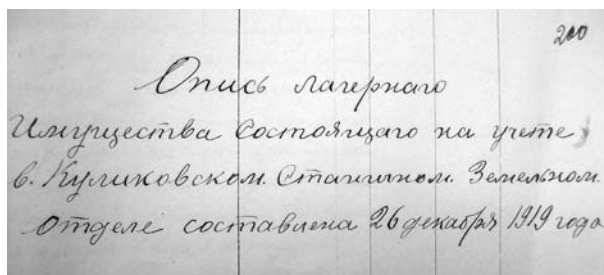 200
Опись лагернаго
Имущества состоящаго на учете
в. Куликовском. Станичном. Земельном.
отделе составлена 26 декабря 1919 года